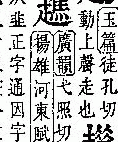 玉篇徒孔切
動上聲走也
趭
廣韻弋照切
揚雄河東賦
韭正字通因字